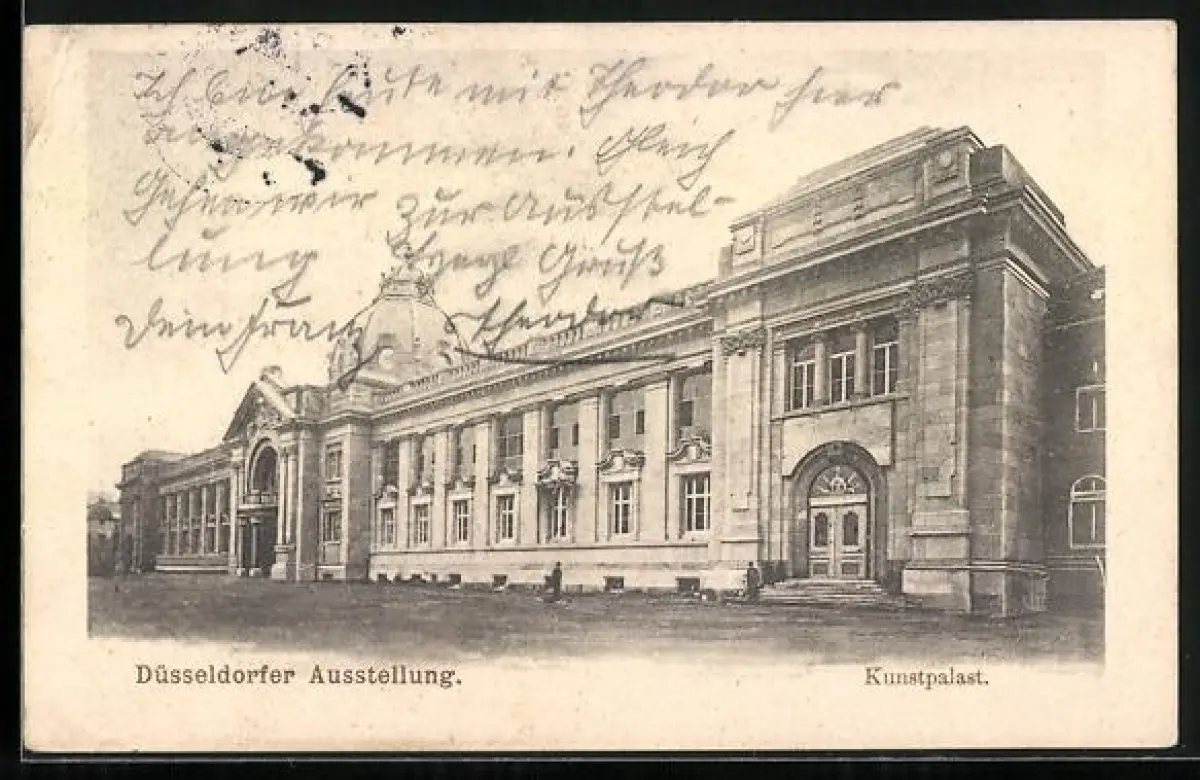 Ich bin heute mit Theodor hier
angekommen. Gleich
Gehen wir zur Ausstel-
lung
Gruß
Dein Franz Theodor
Düsseldorfer Ausstellung.
Kunstpalast.